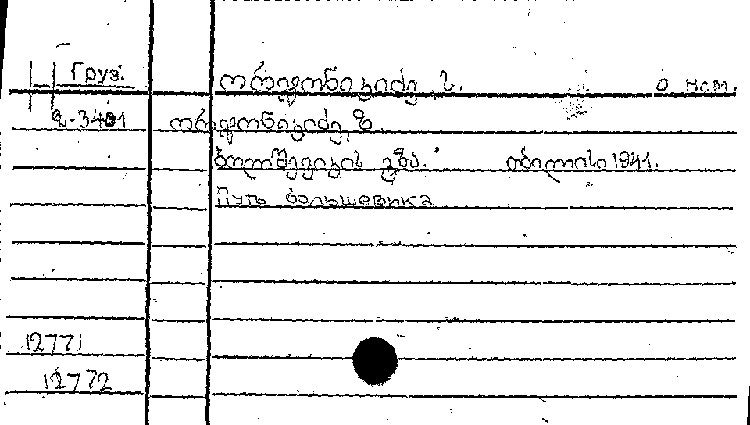 Груз. ორჯონიკიძე ს. о нем.
2-3401 ორჯონიკიძე ზ.
ბოლშევიკის გზა. თბილისი 1941.
Путь большевика
12771
12772